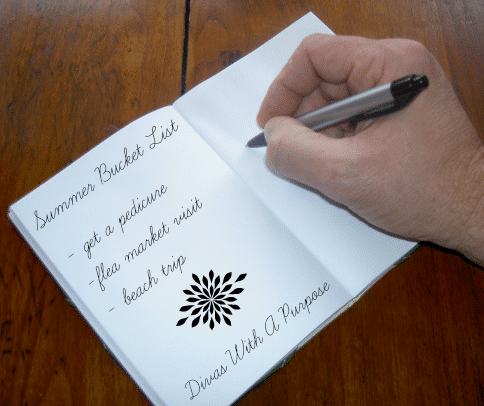 Summer Bucket List
- get a pedicure
-flea market visit
- beach trip
Divas With A Purpose